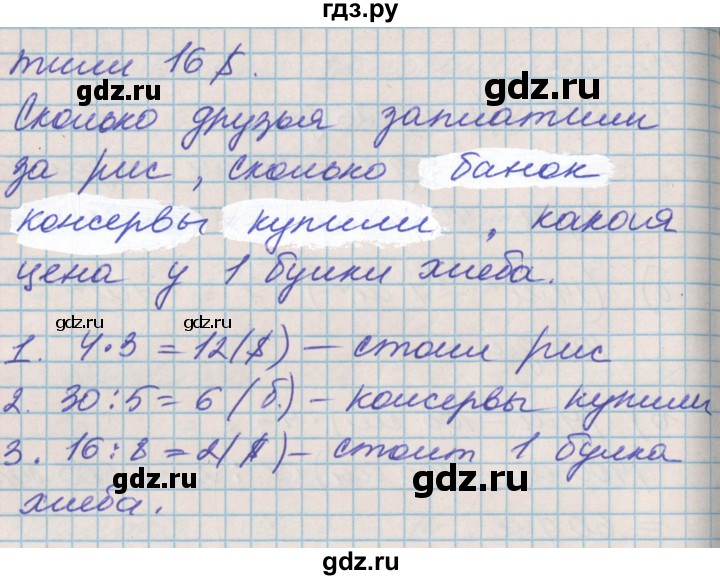 гдз.ру
тили 16 $.
gdz.ru
gdz.ru
Сколько друзья заплатили
за рис, сколько банок
консервы купили, какая
цена у 1 булки хлеба.
gdz.ru
gdz.ru
1. 4·3 = 12($) – стоил рис
2. 30:5 = 6 (б.) – консервы купили
3. 16:8 = 2($) – стоит 1 булка
gdz.ru
gdz.ru
хлеба.
gdz.ru